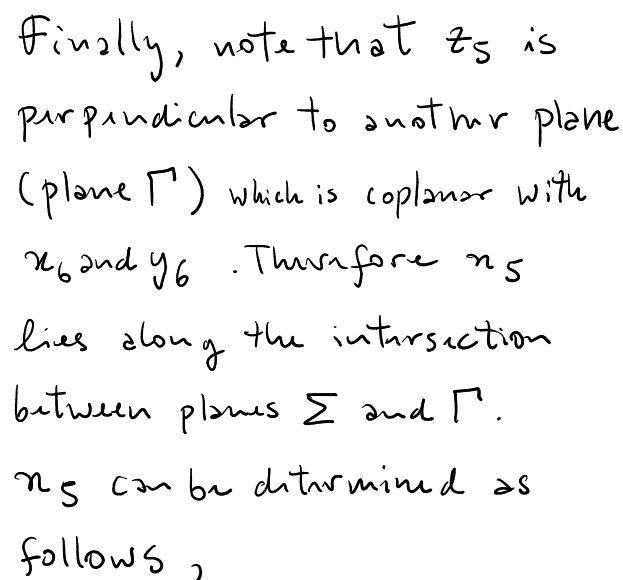 Finally, note that z₅ is
perpendicular to another plane
(plane Γ) which is coplanar with
x₆ and y₆ . Therefore x₅
lies along the intersection
between planes Σ and Γ.
x₅ can be determined as
follows,